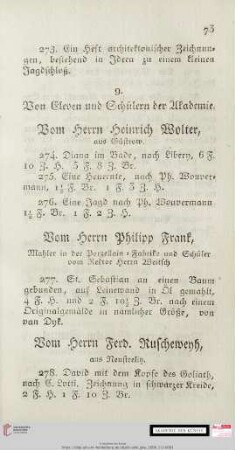 75
273. Ein Heft architektonischer Zeichnun-
gen, bestehend in Ideen zu einem kleinen
Jagdschloß.
9.
Von Eleven und Schülern der Akademie.
Vom Herrn Heinrich Wolter,
aus Güstrow.
274. Diana im Bade, nach Libery, 6 F.
10 Z. H. 5 F. 8 Z. Br.
275. Eine Heuernte, nach Ph. Wouver-
mann, 1¼ F. Br. 1 F. 3 Z. H.
276. Eine Jagd nach Ph. Wouvermann
1¼ F. Br. 1 F. 2 Z. H.
Vom Herrn Philipp Frank,
Mahler in der Porzellain-Fabrike und Schüler
vom Rektor Herrn Weitsch
277. St. Sebastian an einen Baum
gebunden, auf Leinewand in Öl gemahlt,
4 F. H. und 2 F. 10½ Z. Br. nach einem
Originalgemälde in nämlicher Größe, von
van Dyk.
Vom Herrn Ferd. Ruscheweyh,
aus Neustrelitz.
278. David mit dem Kopfe des Goliath,
nach C. Lotti. Zeichnung in schwarzer Kreide,
2 F. H. 1 F. 10 Z. Br.
AKADEMIE DER KÜNSTE